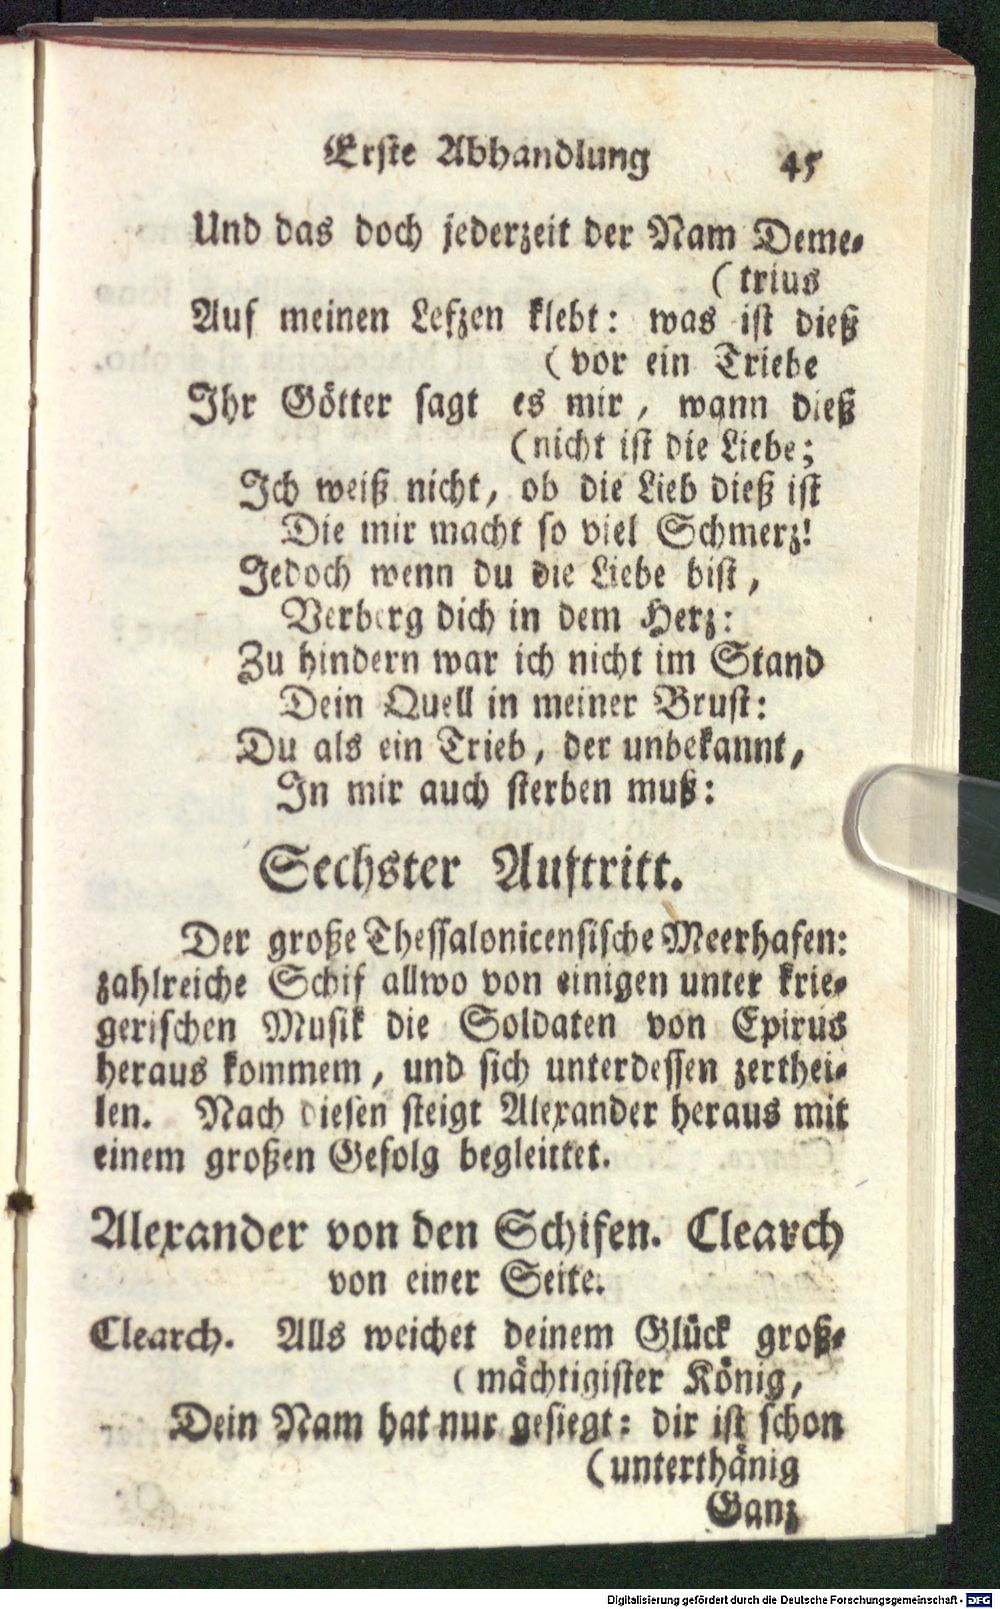 Erste Abhandlung 45
Und das doch jederzeit der Nam Deme-
(trius
Auf meinen Lefzen klebt: was ist dieß
(vor ein Triebe
Ihr Götter sagt es mir, wann dieß
(nicht ist die Liebe;
Ich weiß nicht, ob die Lieb dieß ist
Die mir macht so viel Schmerz!
Jedoch wenn du die Liebe bist,
Verberg dich in dem Herz:
Zu hindern war ich nicht im Stand
Dein Quell in meiner Brust:
Du als ein Trieb, der unbekannt,
In mir auch sterben muß:
Sechster Auftritt.
Der große Thessalonicensische Meerhafen:
zahlreiche Schif allwo von einigen unter krie-
gerischen Musik die Soldaten von Epirus
heraus kommem, und sich unterdessen zerthei-
len. Nach diesen steigt Alexander heraus mit
einem großen Gefolg begleittet.
Alexander von den Schifen. Clearch
von einer Seite.
Clearch. Alls weichet deinem Glück groß-
(mächtigister König,
Dein Nam hat nur gesiegt: dir ist schon
(unterthänig
Ganz
Digitalisierung gefördert durch die Deutsche Forschungsgemeinschaft - DFG